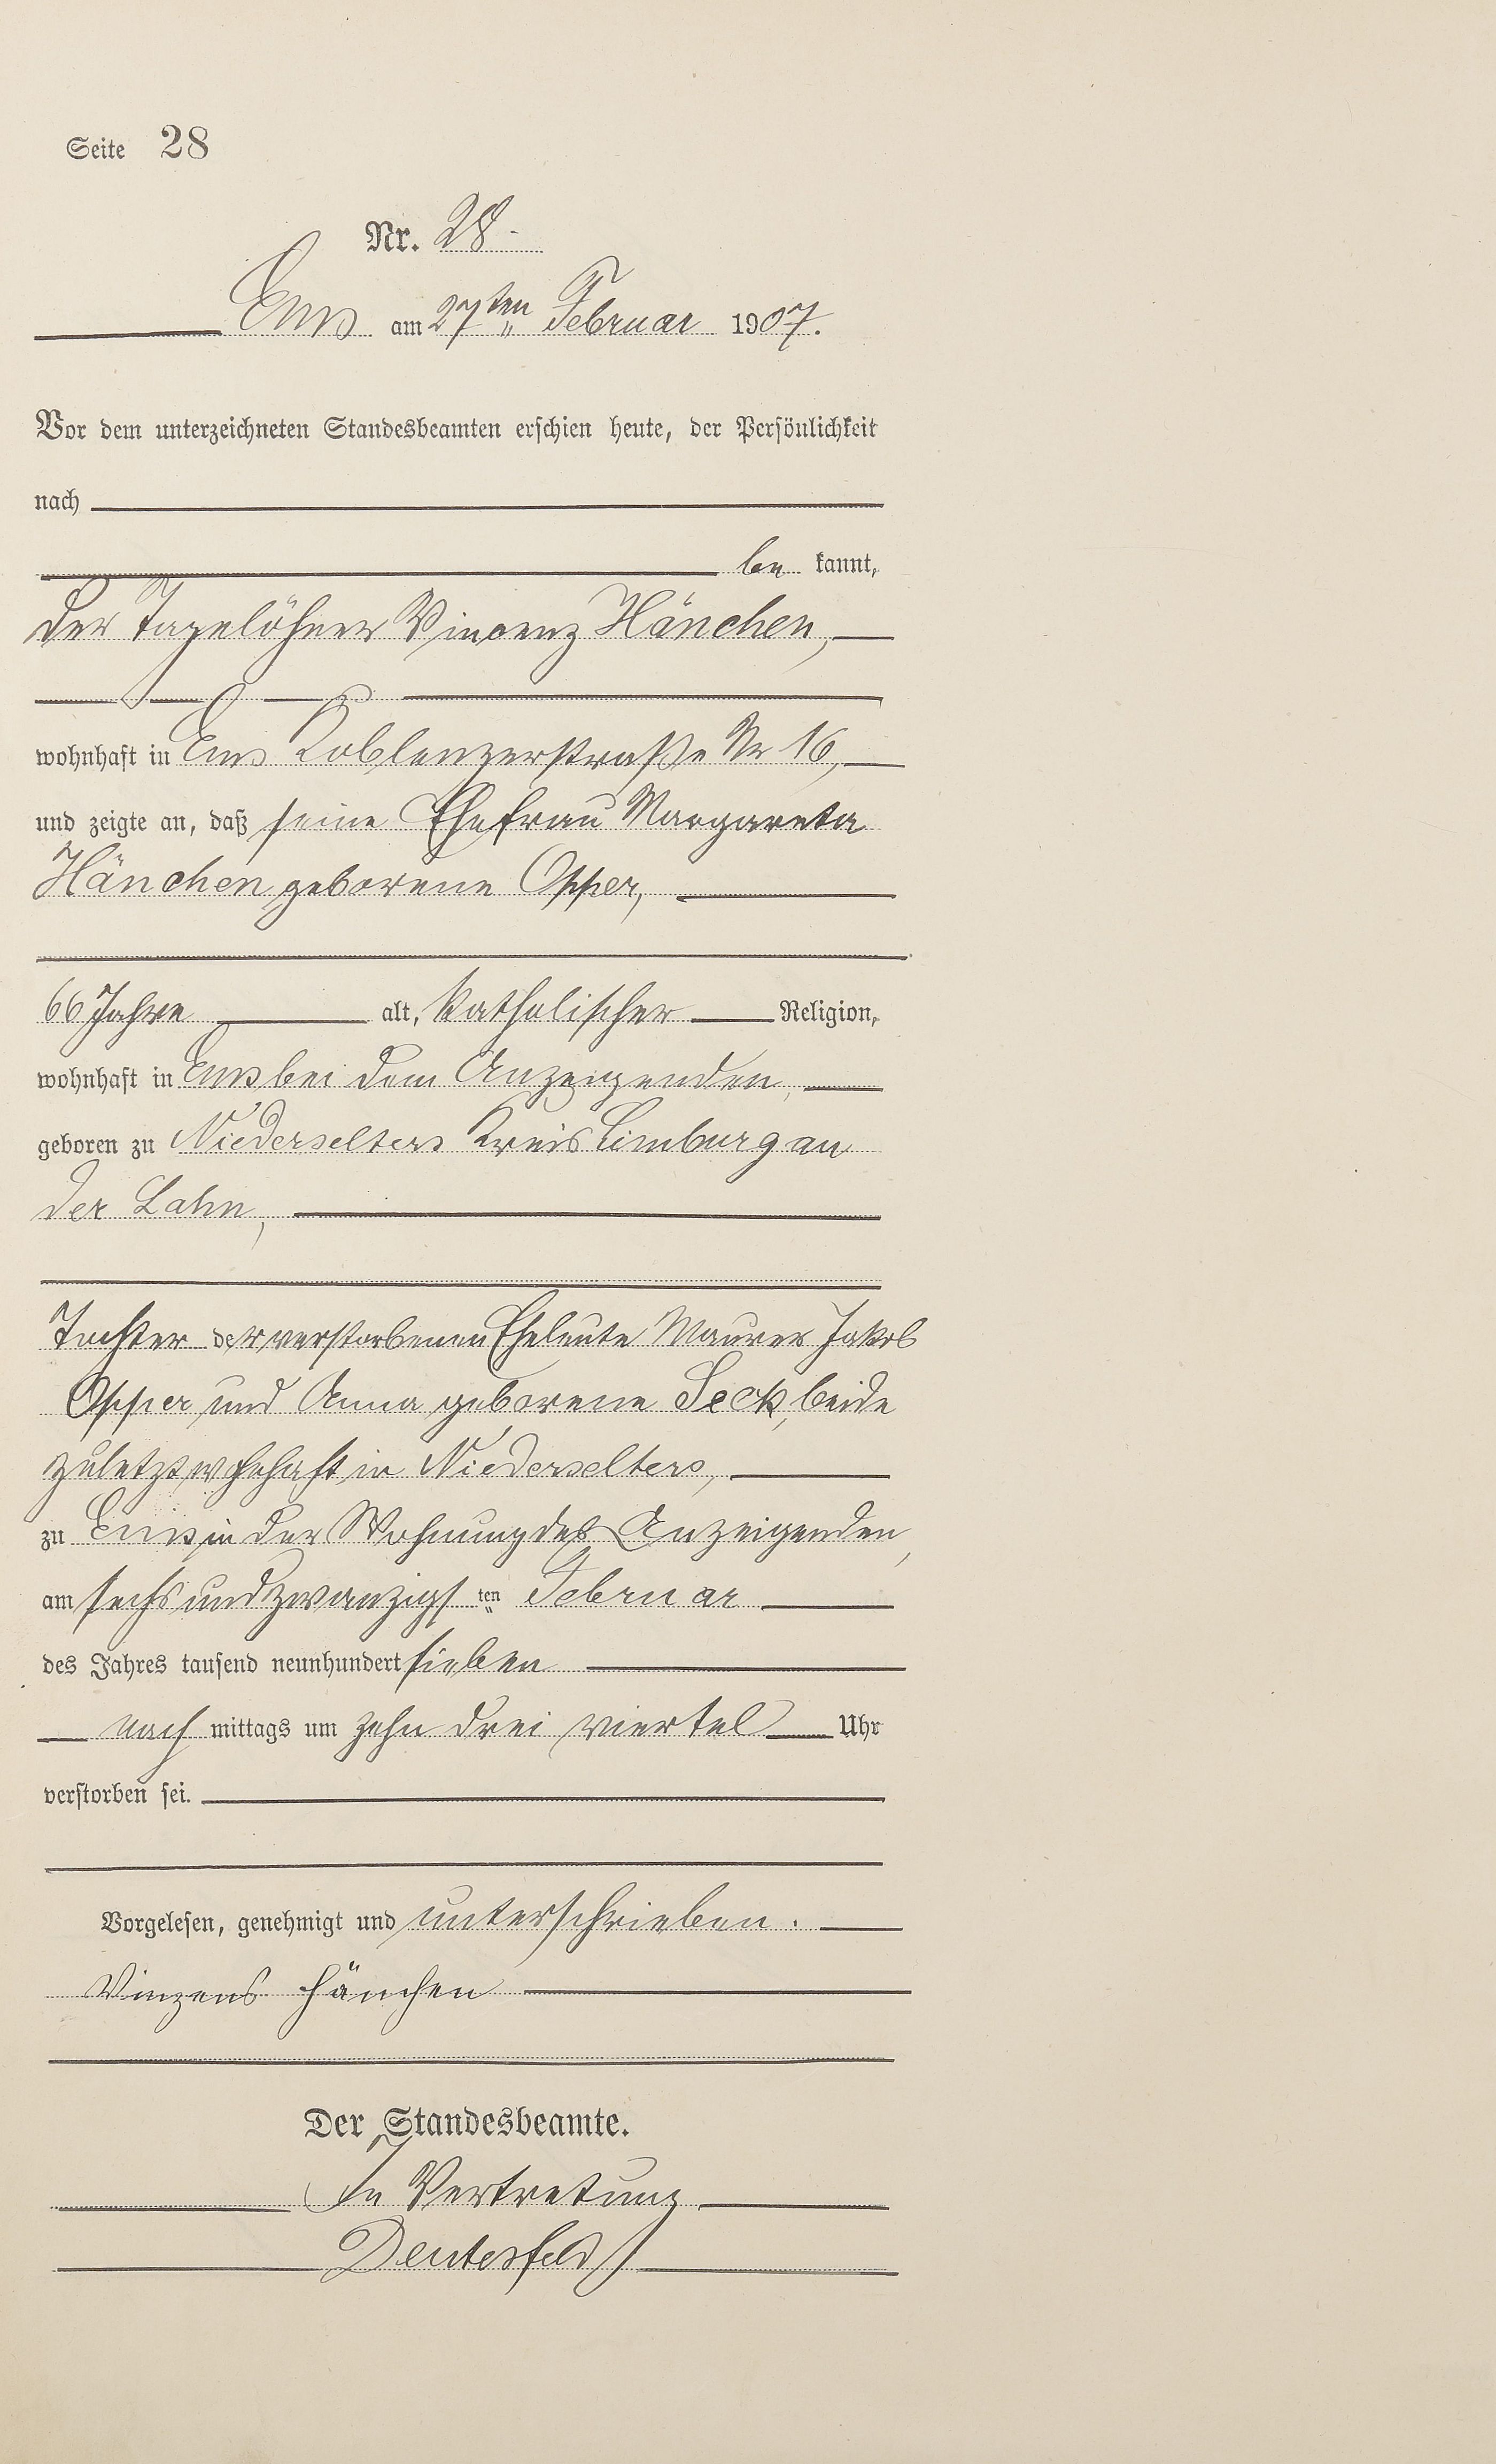 Seite 28
Nr. 28.
Ems am 27ten Februar 1907.
Vor dem unterzeichneten Standesbeamten erschien heute, der Persönlichkeit
nach
be kannt,
der Tagelöhner Vincenz Hänchen,
wohnhaft in Ems Koblenzerstraße Nr 16,
und zeigte an, daß seine Ehefrau Margareta
Hänchen geborene Opper,
66 Jahre alt, katholischer Religion,
wohnhaft in Ems bei dem Anzeigenden,
geboren zu Niederselters Kreis Limburg an
der Lahn,
Tochter der verstorbenen Eheleute Maurer Jakob
Opper und Anna geborene Seck, beide
zuletzt wohnhaft in Niederselters,
zu Ems in der Wohnung des Anzeigenden,
am sechsundzwanzigsten Februar
des Jahres tausend neunhundert sieben
nach mittags um zehn drei viertel Uhr
verstorben sei.
Vorgelesen, genehmigt und unterschrieben.
Vinzens Hänchen
Der Standesbeamte.
In Vertretung
Deutesfeld